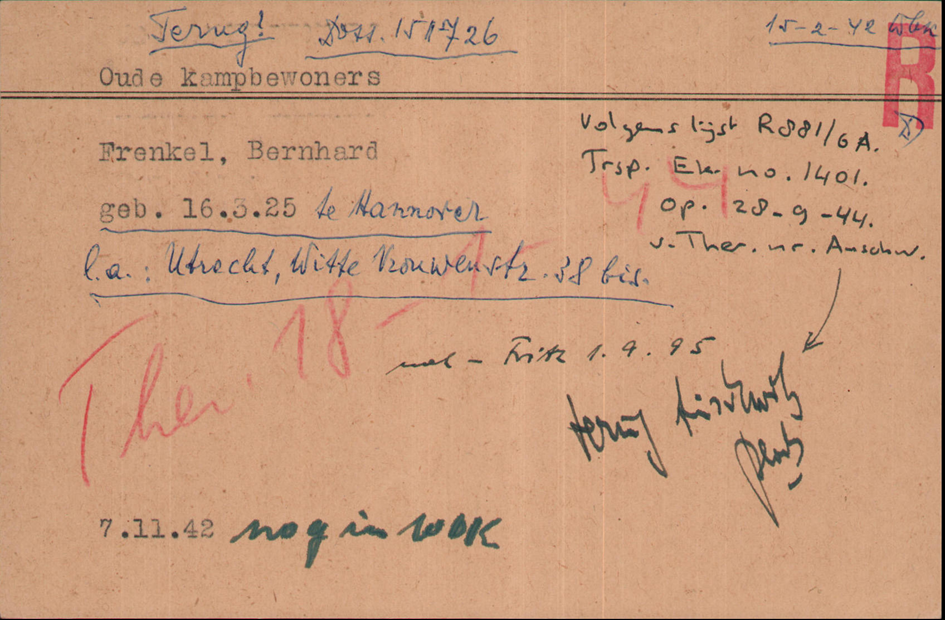 Terug! Doss. 151726 15-2-42 Wbk
R
Oude kampbewoners
Volgens lijst R881/6A.
Frenkel, Bernhard
Trsp. Ek no. 1401.
geb. 16.3.25 te Hannover
op. 28-9-44.
v. Ther. nr. Auschw.
l.a.: Utrecht, Witte Vrouwenstr. 38 bis.
Ther. 18-1-44
Fritz 1.9.95
terug
7.11.42 nog in WBK